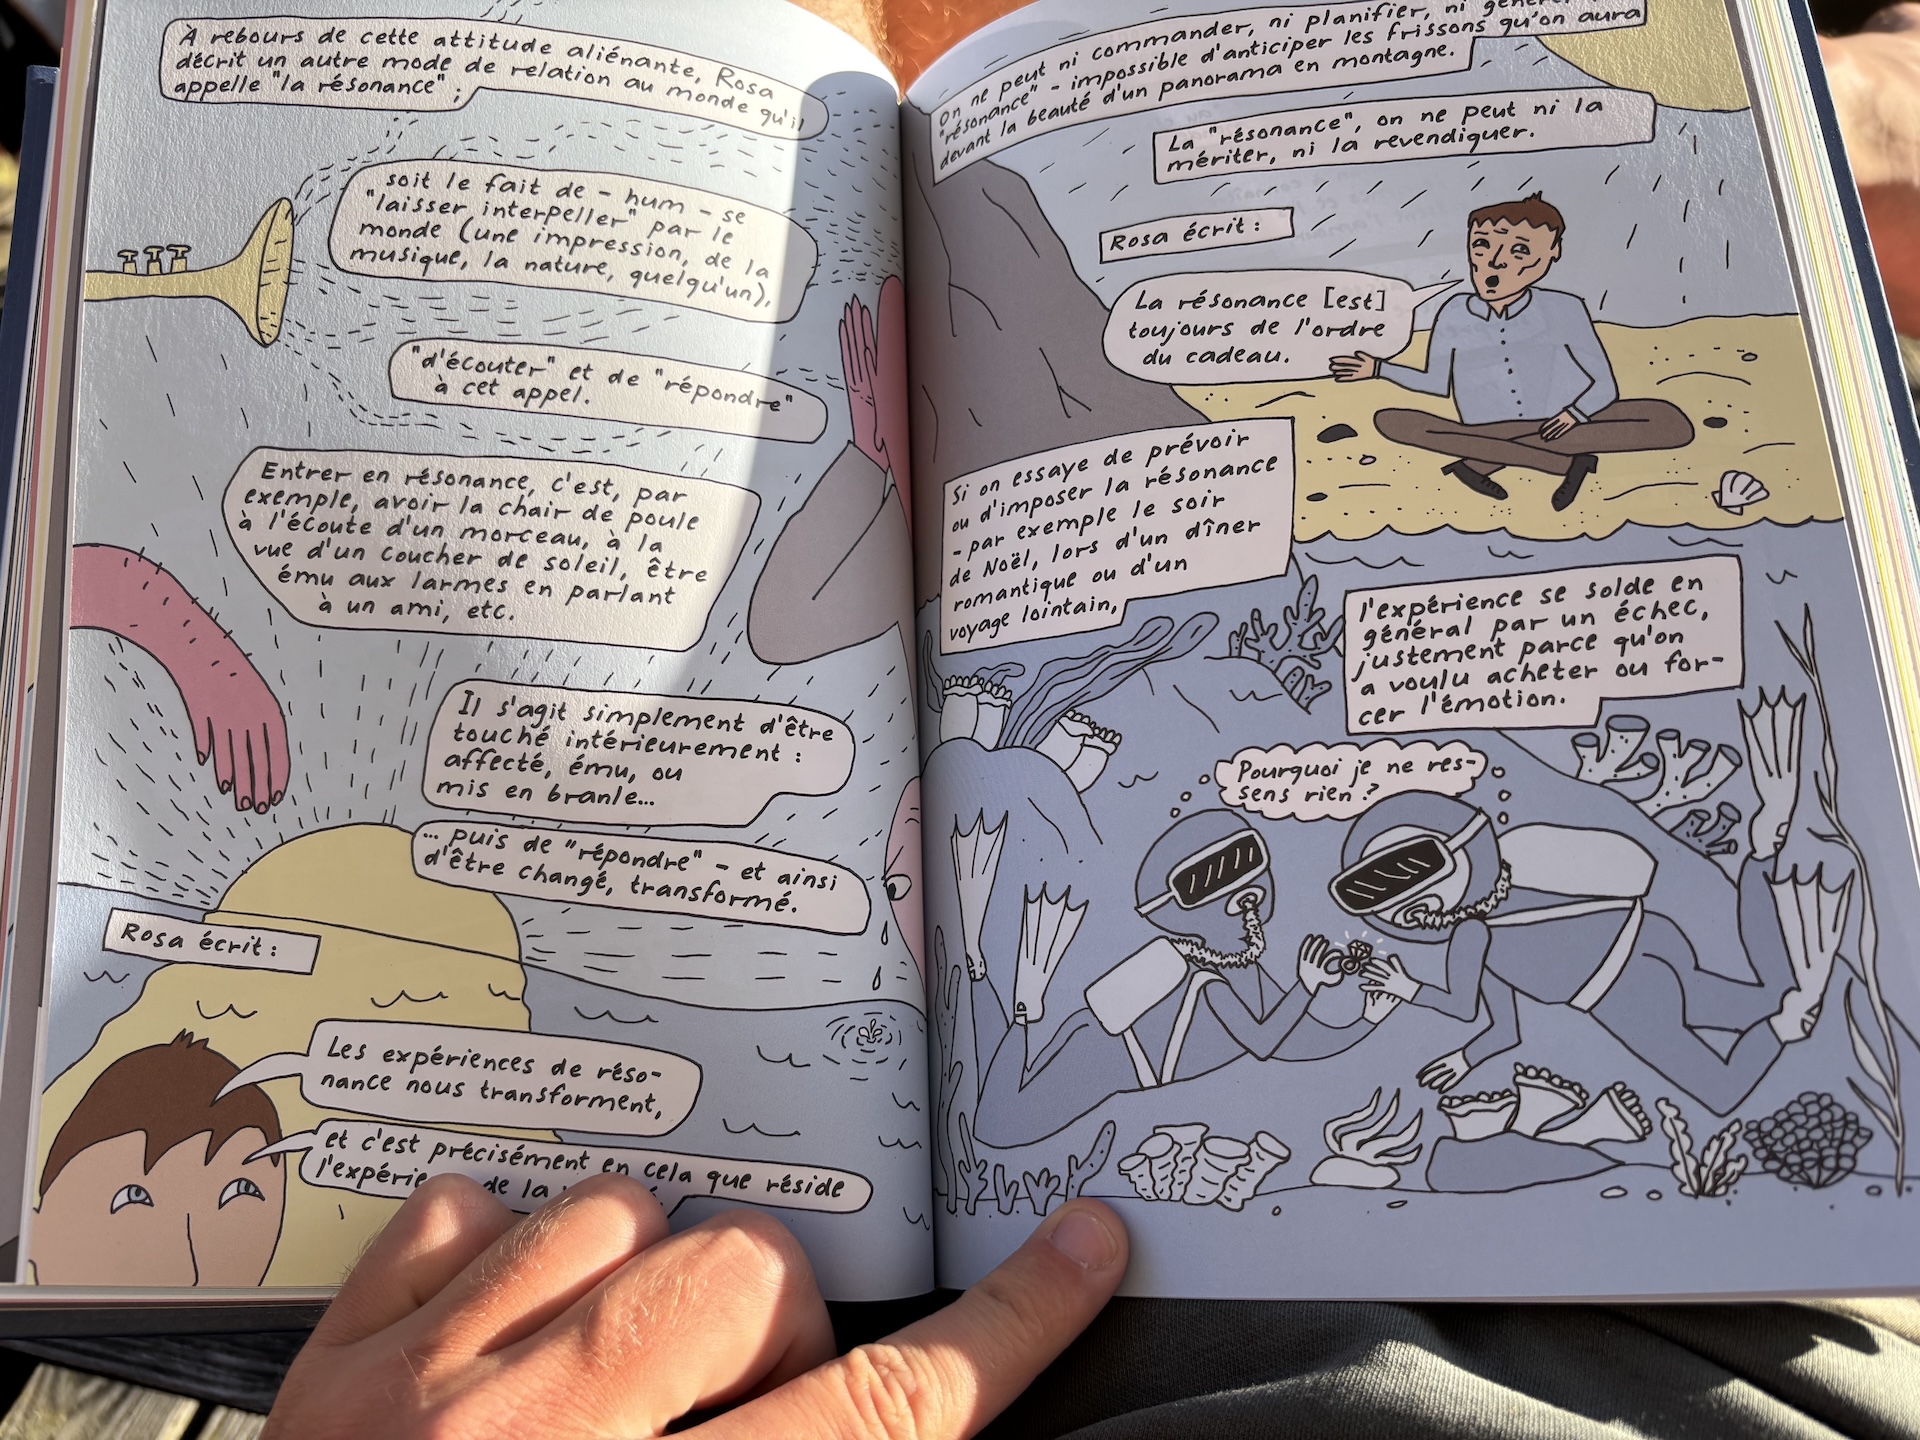 À rebours de cette attitude aliénante, Rosa
décrit un autre mode de relation au monde qu'il
appelle "la résonance",
soit le fait de - hum - se
"laisser interpeller" par le
monde (une impression, de la
musique, la nature, quelqu'un),
"d'écouter" et de "répondre"
à cet appel.
Entrer en résonance, c'est, par
exemple, avoir la chair de poule
à l'écoute d'un morceau, à la
vue d'un coucher de soleil, être
ému aux larmes en parlant
à un ami, etc.
Il s'agit simplement d'être
touché intérieurement :
affecté, ému, ou
mis en branle...
... puis de "répondre" - et ainsi
d'être changé, transformé.
Rosa écrit :
Les expériences de réso-
nance nous transforment,
et c'est précisément en cela que réside
de la
On ne peut ni commander, ni planifier, ni
"résonance" - impossible d'anticiper les frissons qu'on aura
devant la beauté d'un panorama en montagne.
La "résonance", on ne peut ni la
mériter, ni la revendiquer.
Rosa écrit :
La résonance [est]
toujours de l'ordre
du cadeau.
Si on essaye de prévoir
ou d'imposer la résonance
- par exemple le soir
de Noël, lors d'un dîner
romantique ou d'un
voyage lointain,
l'expérience se solde en
général par un échec,
justement parce qu'on
a voulu acheter ou for-
cer l'émotion.
Pourquoi je ne res-
sens rien ?